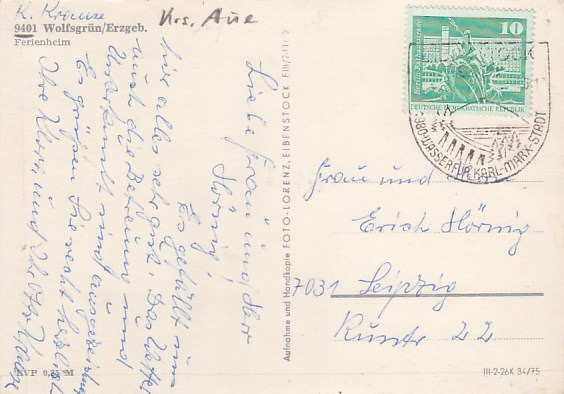 K. Krause
Krs. Aue
9401 Wolfsgrün/Erzgeb.
Ferienheim
Liebe Frau und Herr
Hörnig!
Es gefällt uns
hier alles sehr gut. Das Wetter
und die Betreuung und
Unterkunft sind ausgezeichnet
Es grüßen Sie recht herzlich
Ihre
und Ihr
Aufnahme und Handkopie FOTO-LORENZ, EIBENSTOCK F III/2111
EVP 0,25 M
10
DEUTSCHE DEMOKRATISCHE REPUBLIK
EIBENSTOCK
1980·WASSER FÜR KARL-MARX-STADT
Frau und Herr
Erich Hörnig
7031 Leipzig
22
III-2-26K 34/75